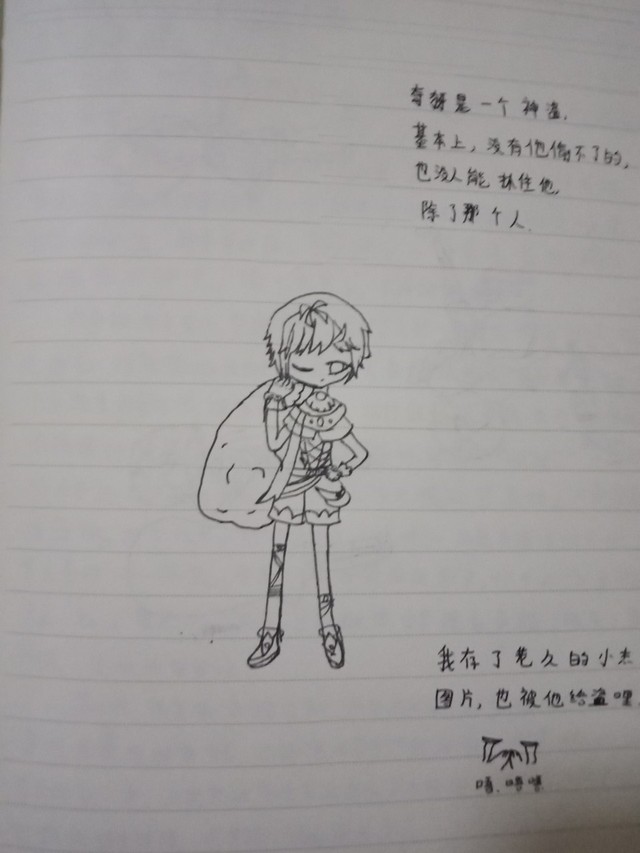 奇犽是一个神盗,
基本上,没有他偷不了的,
也没人能抓住他,
除了那个人.
我存了老久的小杰
图片,也被他给盗哩.
嘻,嘻嘻